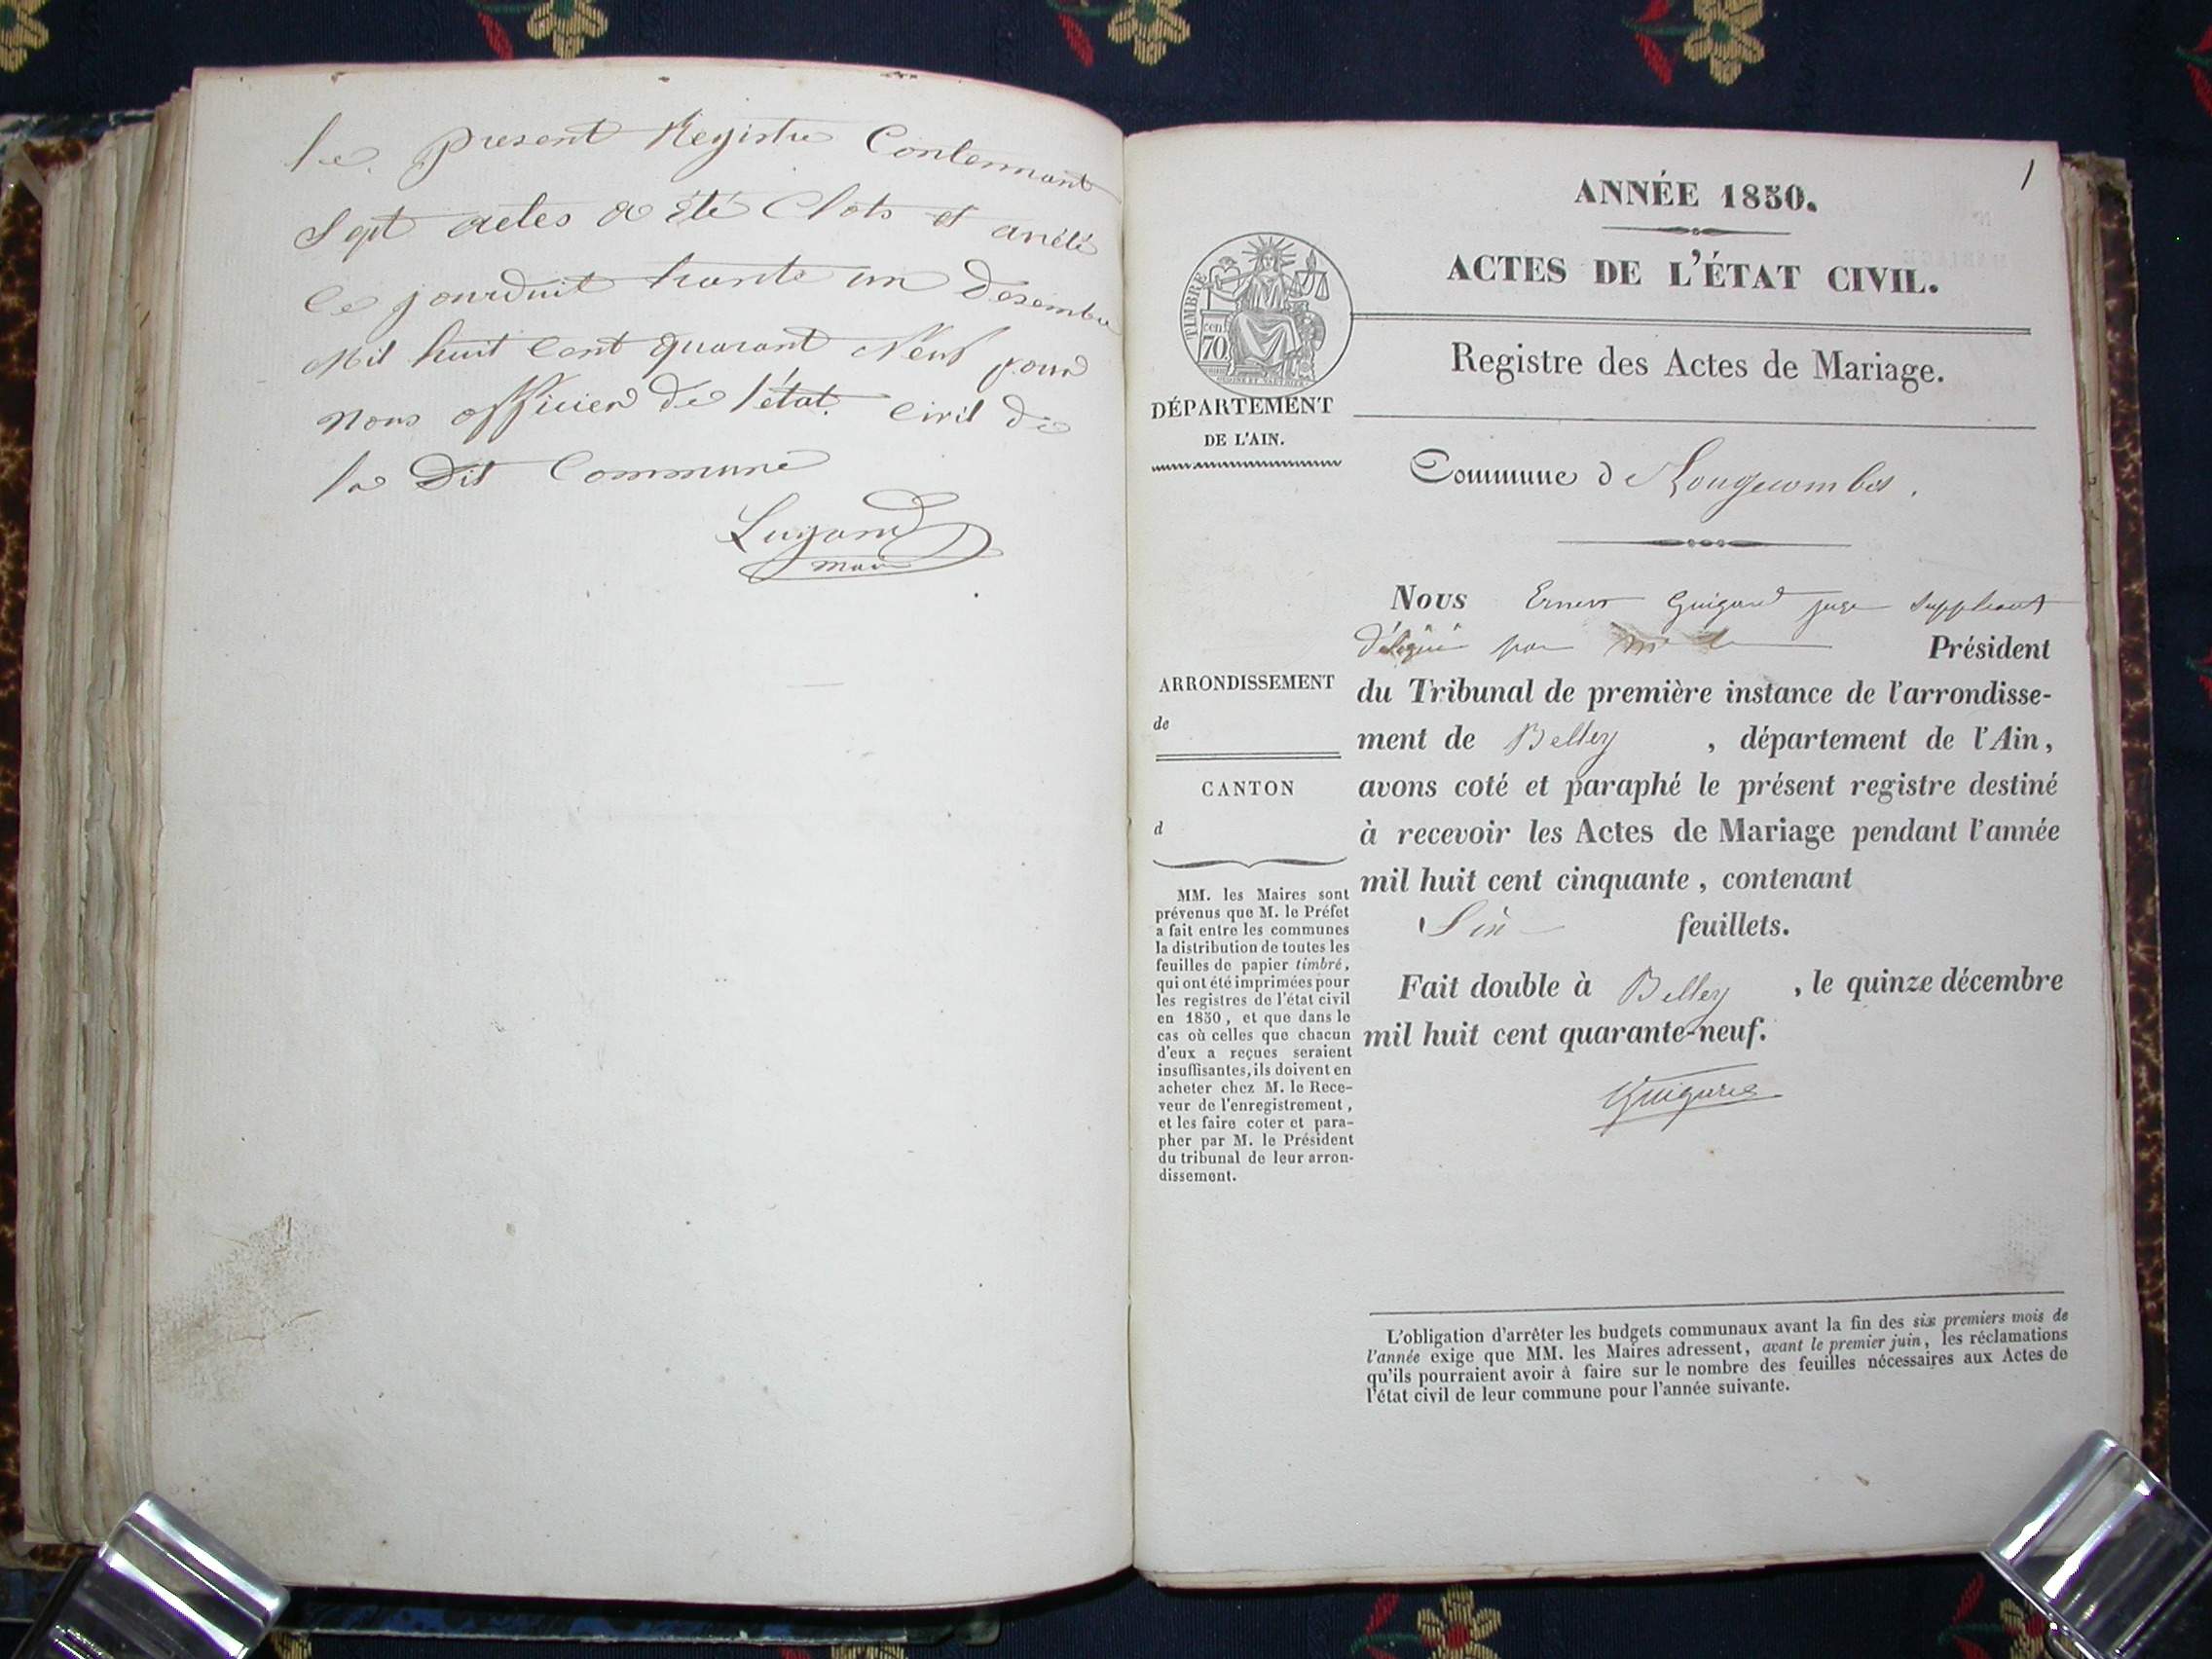 le present Registre Contennant
Sept actes a été Clots et arrété
Ce jourduit trente un Desembre
Mil huit Cent quarant Neuf pour
nous officier de l'état Civil de
la Dit Commune
Lugand
maire
1
ANNÉE 1850.
ACTES DE L'ÉTAT CIVIL.
TIMBRE
cen
70
Registre des Actes de Mariage.
DÉPARTEMENT
DE L'AIN.
Commune de Longecombe.
Nous Ernest Guigard juge Suppleant
délégué par Mr le Président
du Tribunal de première instance de l'arrondisse-
ment de Belley , département de l'Ain,
avons coté et paraphé le présent registre destiné
à recevoir les Actes de Mariage pendant l'année
mil huit cent cinquante, contenant
Six feuillets.
Fait double à Belley , le quinze décembre
mil huit cent quarante-neuf.
Guigard
ARRONDISSEMENT
de
CANTON
d
MM. les Maires sont
prévenus que M. le Préfet
a fait entre les communes
la distribution de toutes les
feuilles de papier timbré,
qui ont été imprimées pour
les registres de l'état civil
en 1850, et que dans le
cas où celles que chacun
d'eux a reçues seraient
insuffisantes, ils doivent en
acheter chez M. le Rece-
veur de l'enregistrement,
et les faire coter et para-
pher par M. le Président
du tribunal de leur arron-
dissement.
L'obligation d'arrêter les budgets communaux avant la fin des six premiers mois de
l'année exige que MM. les Maires adressent, avant le premier juin, les réclamations
qu'ils pourraient avoir à faire sur le nombre des feuilles nécessaires aux Actes de
l'état civil de leur commune pour l'année suivante.